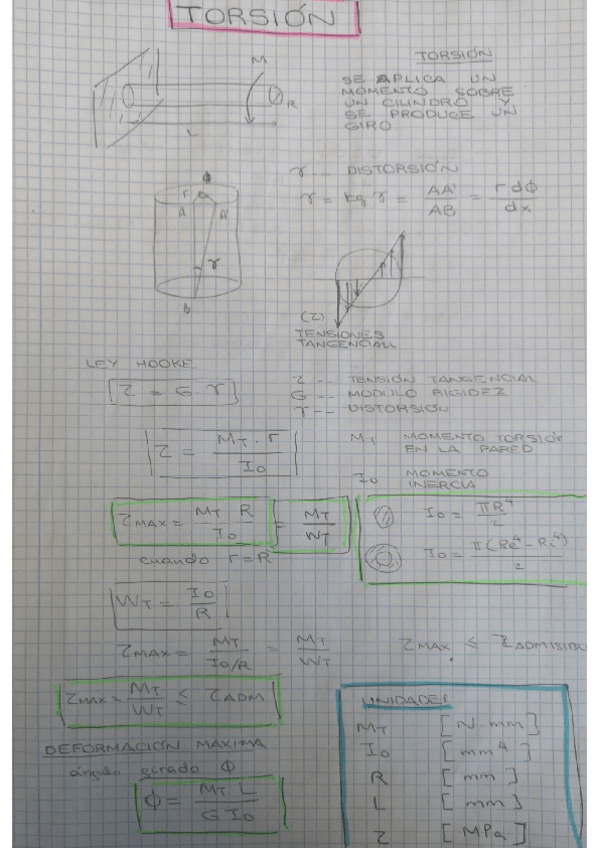 TORSIÓN
TORSIÓN
SE APLICA UN
MOMENTO SOBRE
UN CILINDRO Y
SE PRODUCE UN
GIRO
M
R
L
γ -- DISTORSIÓN
γ = tg γ = AA' / AB = r dϕ / dx
r
A
A'
γ
B
(τ)
TENSIONES
TANGENCIALL
LEY HOOKE
τ = G · γ
τ -- TENSIÓN TANGENCIAL
G -- MODULO RIGIDEZ
γ -- DISTORSIÓN
τ = MT · r / Io
MT MOMENTO TORSIO
EN LA PARED
Io MOMENTO
INERCIA
τMAX = MT R / Io = MT / WT
cuando r = R
Io = πR⁴ / 2
Io = π(Re⁴ - Ri⁴) / 2
WT = Io / R
τMAX = MT / Io/R = MT / WT
τMAX ≤ τADMISIBL
τMAX = MT / WT ≤ τADM
DEFORMACIÓN MAXIMA
ángulo girado ϕ
ϕ = MT L / G Io
UNIDADES
MT [N·mm]
Io [mm⁴]
R [mm]
L [mm]
τ [MPa]